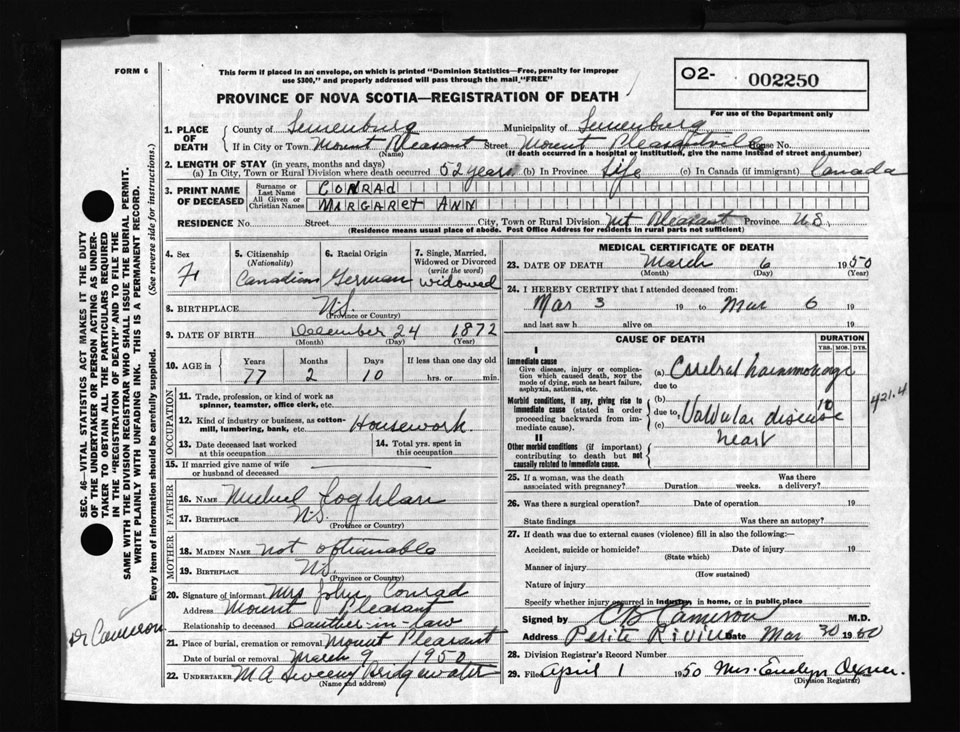 FORM 6
This form if placed in an envelope, on which is printed "Dominion Statistics—Free, penalty for improper
use $300," and properly addressed will pass through the mail, "FREE"
O2- 002250
PROVINCE OF NOVA SCOTIA—REGISTRATION OF DEATH
For use of the Department only
1. PLACE OF DEATH
County of Lunenburg Municipality of Lunenburg
If in City or Town Mount Pleasant Street Mount Pleasantville House No.
(Name) (If death occurred in a hospital or institution, give the name instead of street and number)
2. LENGTH OF STAY (in years, months and days)
(a) In City, Town or Rural Division where death occurred 52 years (b) In Province Life (c) In Canada (if immigrant) Canada
3. PRINT NAME OF DECEASED
Surname or Last Name CONRAD
All Given or Christian Names MARGARET ANN
RESIDENCE No. Street City, Town or Rural Division Mt Pleasant Province NS
(Residence means usual place of abode. Post Office Address for residents in rural parts not sufficient)
4. Sex F
5. Citizenship (Nationality) Canadian
6. Racial Origin German
7. Single, Married, Widowed or Divorced (write the word) widowed
8. BIRTHPLACE N.S.
(Province or Country)
9. DATE OF BIRTH December 24 1872
(Month) (Day) (Year)
10. AGE in Years Months Days If less than one day old
77 2 10 hrs. or min.
OCCUPATION
11. Trade, profession, or kind of work as
spinner, teamster, office clerk, etc.
12. Kind of industry or business, as cotton-
mill, lumbering, bank, etc. Housework
13. Date deceased last worked
at this occupation
14. Total yrs. spent in
this occupation
15. If married give name of wife
or husband of deceased
FATHER
16. NAME Coghlan
17. BIRTHPLACE N.S.
(Province or Country)
MOTHER
18. MAIDEN NAME not obtainable
19. BIRTHPLACE N.S.
(Province or Country)
20. Signature of informant Mrs John Conrad
Address Mount Pleasant
Relationship to deceased Dauther-in-law
21. Place of burial, cremation or removal Mount Pleasant
Date of burial or removal March 9 1950
22. UNDERTAKER M A Sweeny Bridgewater
(Name and address)
MEDICAL CERTIFICATE OF DEATH
23. DATE OF DEATH March 6 1950
(Month) (Day) (Year)
24. I HEREBY CERTIFY that I attended deceased from:
Mar 3 19 to Mar 6 19
and last saw h alive on 19
CAUSE OF DEATH DURATION
YRS. MOS. DYS.
I
Immediate cause
Give disease, injury or complica-
tion which caused death, NOT the
mode of dying, such as heart failure,
asphyxia, asthenia, etc.
(a) Cerebral haemmorage
due to
Morbid conditions, if any, giving rise to
immediate cause (stated in order
proceeding backwards from im-
mediate cause).
(b)
due to Valvular disease 10
(c) heart
421.4
II
Other morbid conditions (if important)
contributing to death but not
causally related to immediate cause.
25. If a woman, was the death
associated with pregnancy? Duration weeks. Was there
a delivery?
26. Was there a surgical operation? Date of operation 19
State findings Was there an autopsy?
27. If death was due to external causes (violence) fill in also the following:—
Accident, suicide or homicide? Date of injury 19
(State which)
Manner of injury
(How sustained)
Nature of injury
Specify whether injury occurred in industry, in home, or in public place
Signed by Cameron M.D.
Address Petite Riviere Date Mar 30 1950
28. Division Registrar's Record Number
29. Filed April 1 1950 Mrs. Evelyn Oxner.
(Division Registrar)
SEC. 46—VITAL STATISTICS ACT MAKES IT THE DUTY
OF THE UNDERTAKER OR PERSON ACTING AS UNDER-
TAKER TO OBTAIN ALL THE PARTICULARS REQUIRED
IN THE "REGISTRATION OF DEATH" AND TO FILE THE
SAME WITH THE DIVISION REGISTRAR WHO SHALL ISSUE THE BURIAL PERMIT.
WRITE PLAINLY WITH UNFADING INK. THIS IS A PERMANENT RECORD.
Every item of information should be carefully supplied. (See reverse side for instructions.)
Dr Cameron